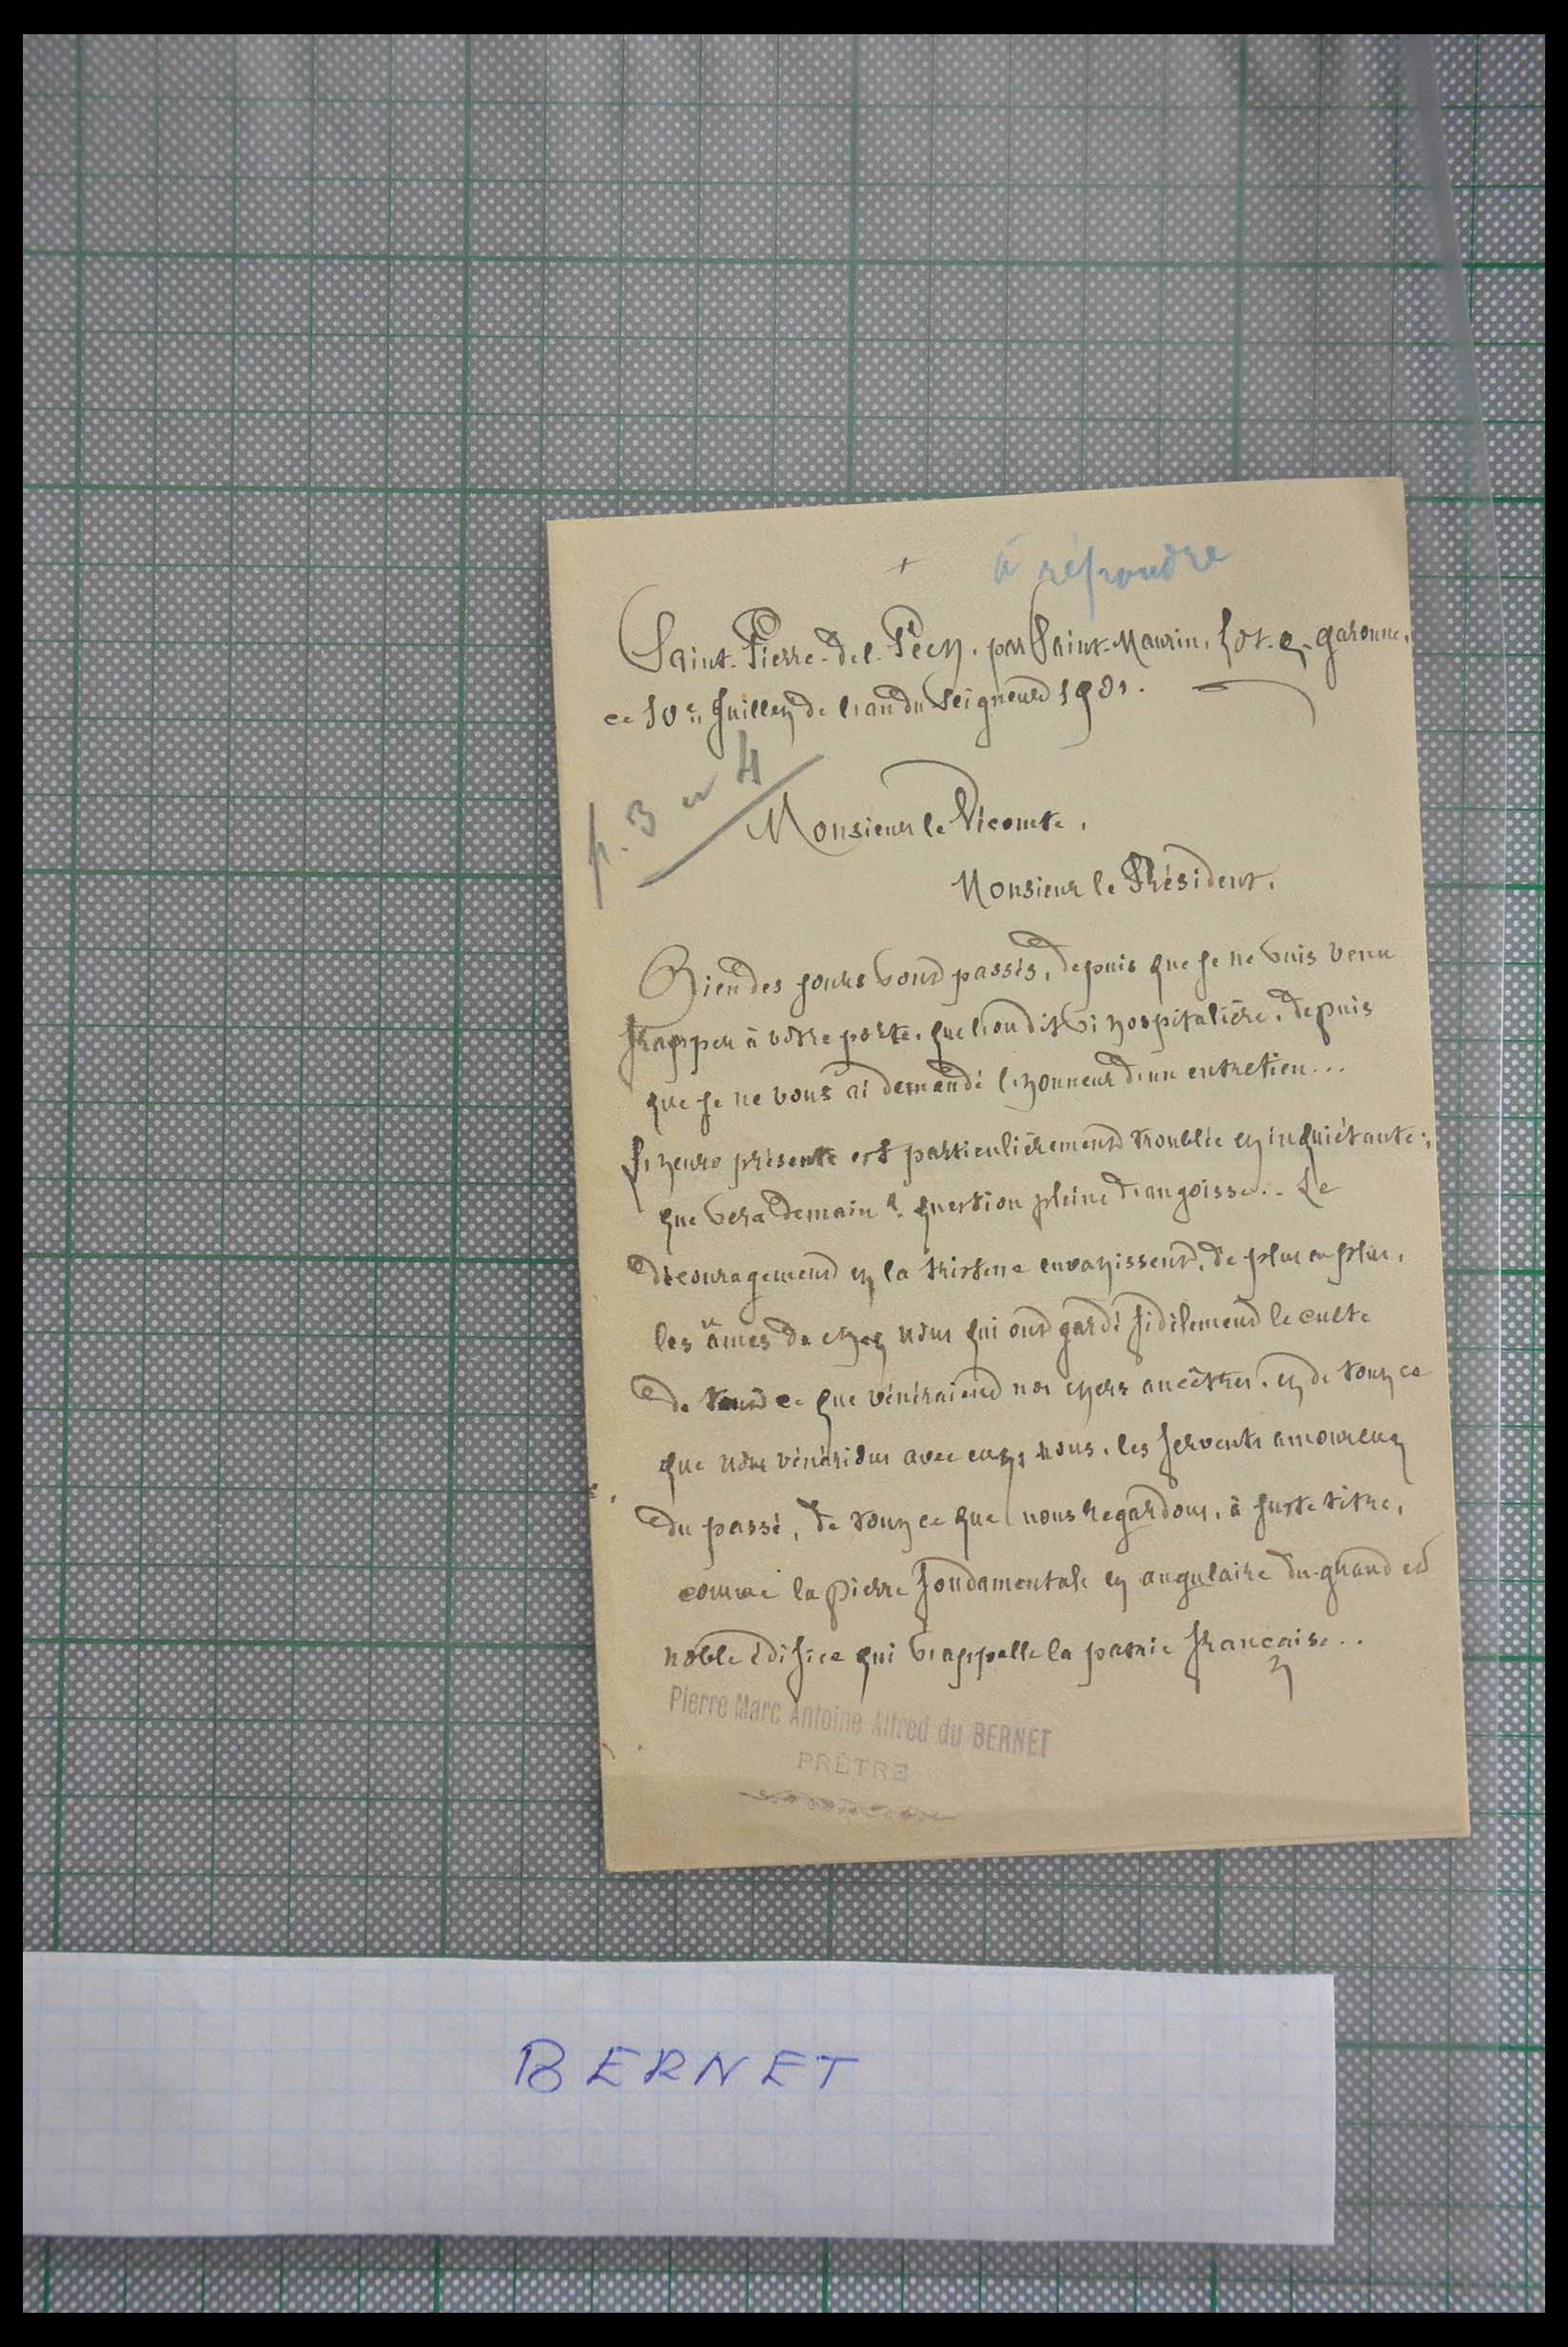 + à répondre
Saint-Pierre-del-Pech, par Saint-Maurin, Lot-et-garonne,
ce 10e Juillet de l'an du Seigneur 1901.
p. 3 et 4
Monsieur le Vicomte,
Monsieur le Président,
Bien des jours sont passés, depuis que je ne suis venu
frapper à votre porte, que l'on dit si hospitalière, depuis
que je ne vous ai demandé l'honneur d'un entretien...
L'heure présente est particulièrement troublée et inquiétante;
que sera demain? question pleine d'angoisse... Le
découragement et la tristesse envahissent, de plus en plus,
les âmes de chez nous qui ont gardé fidèlement le culte
de tout ce que vénéraient nos chers ancêtres, et de tout ce
que nous vénérions avec eux, nous, les fervents amoureux
du passé, de tout ce que nous regardons, à juste titre,
comme la pierre fondamentale et angulaire du grand et
noble édifice qui s'appelle la patrie française...
Pierre Marc Antoine Alfred du BERNET
PRÊTRE
BERNET